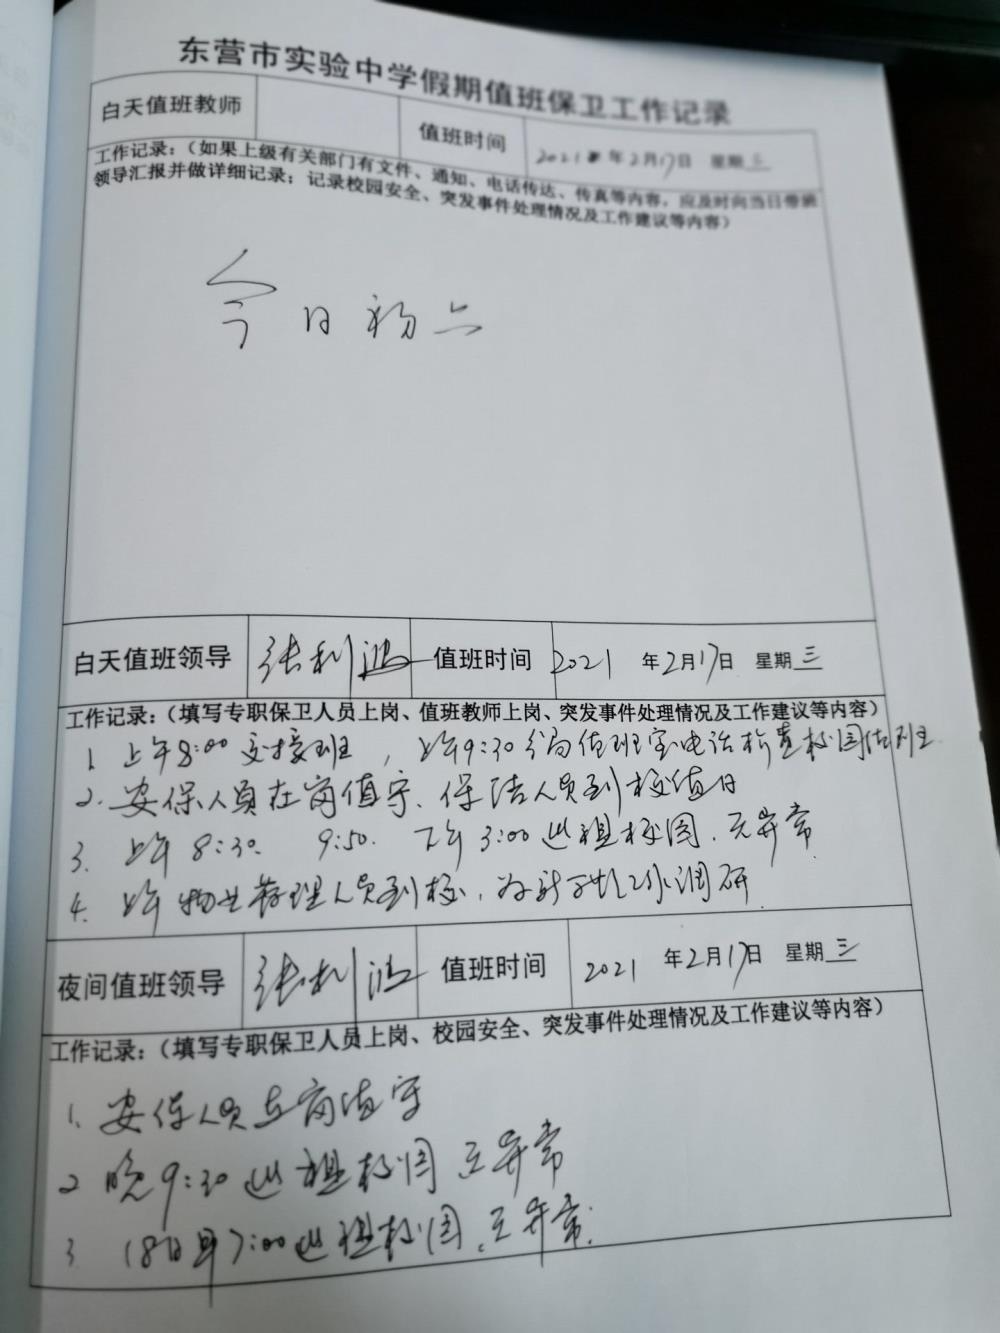 东营市实验中学假期值班保卫工作记录
白天值班教师 值班时间 2021 年 2月17日 星期三
工作记录：（如果上级有关部门有文件、通知、电话传达、传真等内容，应及时向当日带班
领导汇报并做详细记录；记录校园安全、突发事件处理情况及工作建议等内容）
今日初六
白天值班领导 张利 值班时间 2021 年2月17日 星期三
工作记录：（填写专职保卫人员上岗、值班教师上岗、突发事件处理情况及工作建议等内容）
1. 上午8:00 交接班，上午9:30分局值班室电话检查校园值班
2. 安保人员在岗值守、保洁人员到校值日
3. 上午 8:30. 9:50. 下午 3:00 巡视校园，无异常
4. 上午物业管理人员到校，为 调研
夜间值班领导 张利 值班时间 2021 年2月17日 星期三
工作记录：（填写专职保卫人员上岗、校园安全、突发事件处理情况及工作建议等内容）
1. 安保人员在岗值守
2 晚9:30 巡视校园 无异常
3 18日早7:00巡视校园，无异常.